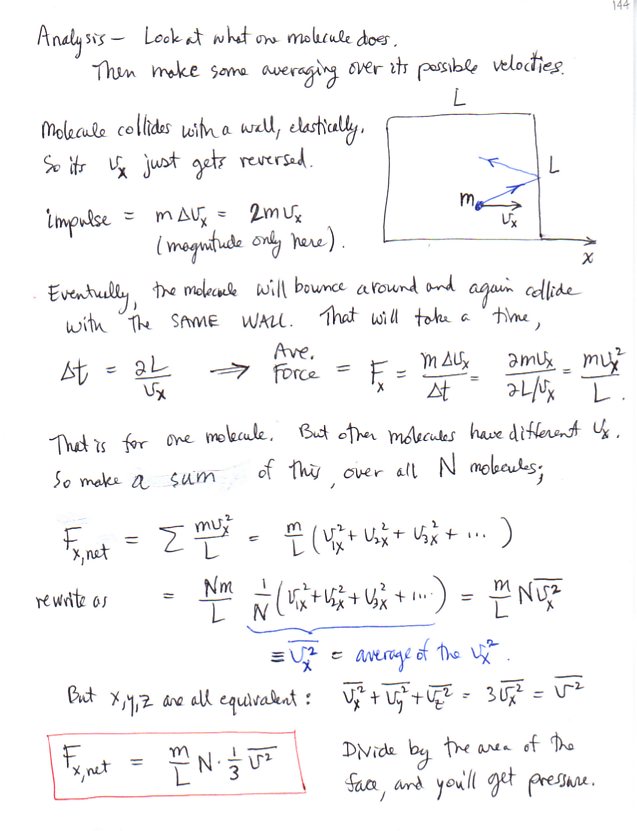 144
Analysis – Look at what one molecule does.
Then make some averaging over its possible velocties.
L
Molecule collides with a wall, elastically.
So its v_x just gets reversed.
L
m
v_x
x
impulse = mΔv_x = 2mv_x
(magnitude only here).
Eventually, the molecule will bounce around and again collide
with the SAME WALL. That will take a time,
Δt = 2L/v_x ⟹ Ave. Force = F_x = mΔv_x/Δt = 2mv_x/(2L/v_x) = mv_x²/L.
That is for one molecule. But other molecules have different v_x.
So make a sum of this, over all N molecules;
F_x,net = Σ mv_x²/L = m/L (v_1x² + v_2x² + v_3x² + ...)
rewrite as = Nm/L 1/N (v_1x² + v_2x² + v_3x² + ...) = m/L N v̅_x²
≡ v̅_x² = average of the v_x².
But x,y,z are all equivalent: v̅_x² + v̅_y² + v̅_z² = 3v̅_x² = v̅²
F_x,net = m/L N · 1/3 v̅²
Divide by the area of the
face, and you'll get pressure.